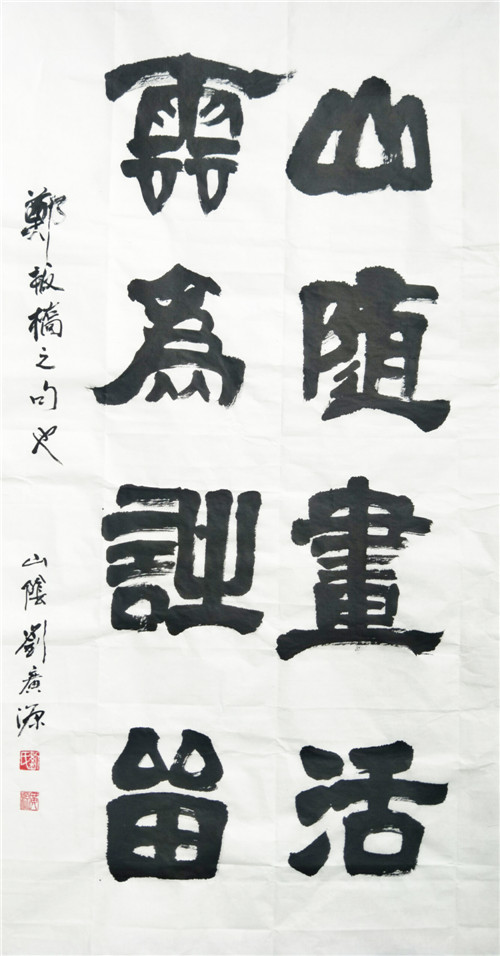 山随畫活
雲為詩留
鄭板橋之句也 山陰劉廣源